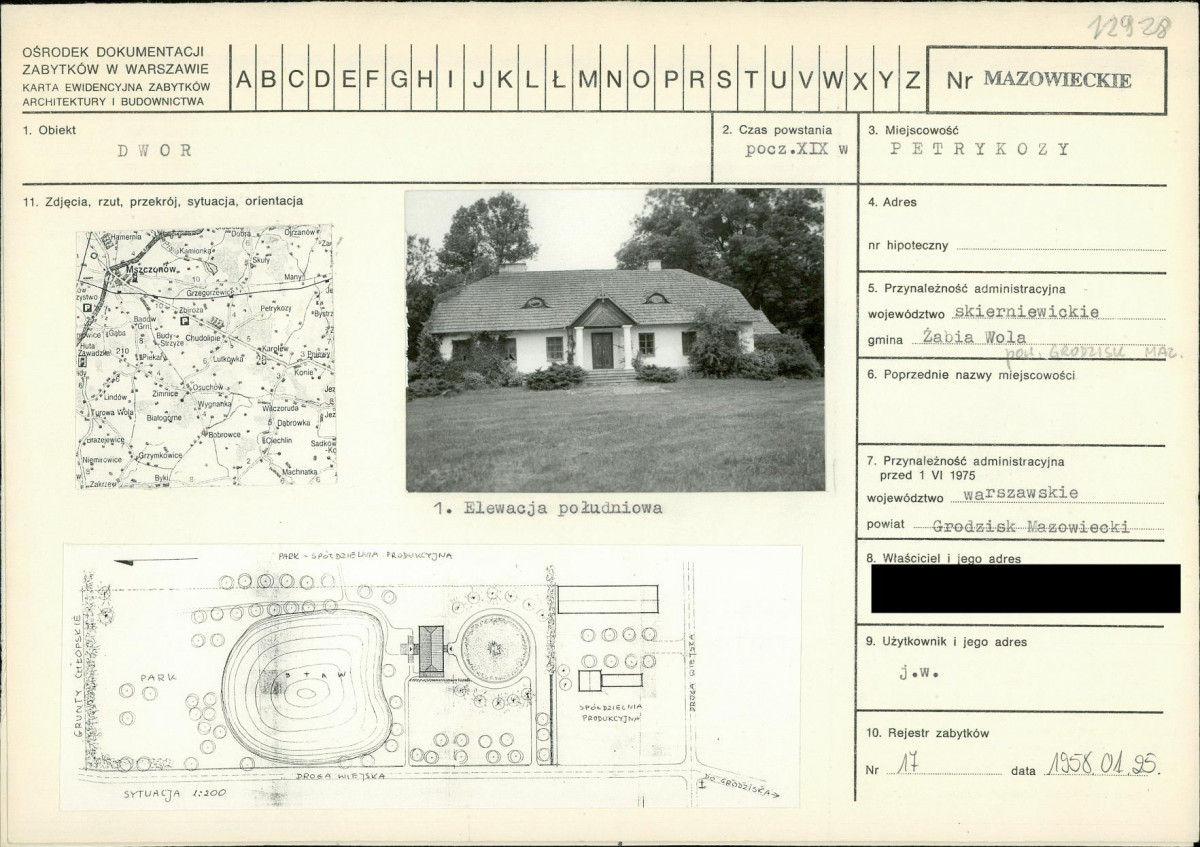 12928
OŚRODEK DOKUMENTACJI
ZABYTKÓW W WARSZAWIE
KARTA EWIDENCYJNA ZABYTKÓW
ARCHITEKTURY I BUDOWNICTWA
A B C D E F G H I J K L Ł M N O P R S T U V W X Y Z
Nr MAZOWIECKIE
1. Obiekt
DWOR
2. Czas powstania
pocz.XIX w
3. Miejscowość
PETRYKOZY
11. Zdjęcia, rzut, przekrój, sytuacja, orientacja
4. Adres
nr hipoteczny
5. Przynależność administracyjna
województwo skierniewickie
gmina Żabia Wola
pow. GRODZISK MAZ.
6. Poprzednie nazwy miejscowości
7. Przynależność administracyjna
przed 1 VI 1975
województwo warszawskie
powiat Grodzisk Mazowiecki
8. Właściciel i jego adres
9. Użytkownik i jego adres
j.w.
10. Rejestr zabytków
Nr 17 data 1958.01.25.
Hamernia
Dobra
Grzanów
Kamionka
Skuły
Mszczonów
Many
Grzegorzewice
Zbiroża
Petrykozy
Badów
Grn.
Gąba
Budy-
Strzyże
Chudolipie
Karolew
Huta
Zawadzka
210
Piekary
Lutkówka
26
Konie
Osuchów
Lindów
Zimnice
Wygnanka
Wilczoruda
Turowa Wola
Białogórne
Dąbrówka
Błażejewice
Bobrowce
Ciechlin
Niemirowice
Grzymkowice
Byki
Machnatka
1. Elewacja południowa
PARK - SPÓŁDZIELNIA PRODUKCYJNA
GRUNTY CHŁOPSKIE
PARK
STAW
SPÓŁDZIELNIA
PRODUKCYJNA
DROGA WIEJSKA
DROGA WIEJSKA
DO GRODZISKA
SYTUACJA 1:200